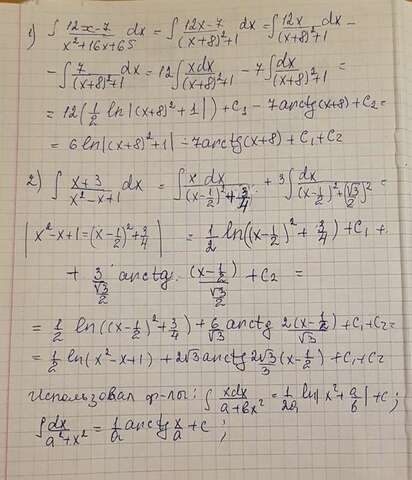 1) ∫ (12x-7)/(x²+16x+65) dx = ∫ (12x-7)/((x+8)²+1) dx = ∫ 12x/((x+8)²+1) dx -
- ∫ 7/((x+8)²+1) dx = 12 ∫ xdx/((x+8)²+1) - 7 ∫ dx/((x+8)²+1) =
= 12(1/2 ln|(x+8)²+1|) + C₁ - 7arctg(x+8) + C₂ =
= 6 ln|(x+8)²+1| - 7arctg(x+8) + C₁ + C₂
2) ∫ (x+3)/(x²-x+1) dx = ∫ x dx/((x-1/2)²+3/4) + 3 ∫ dx/((x-1/2)²+(√3/2)²) =
|x²-x+1=(x-1/2)²+3/4| = 1/2 ln((x-1/2)²+3/4) + C₁ +
+ 3/(√3/2) arctg (x-1/2)/(√3/2) + C₂ =
= 1/2 ln((x-1/2)²+3/4) + 6/√3 arctg 2(x-1/2)/√3 + C₁ + C₂ =
= 1/2 ln(x²-x+1) + 2√3 arctg 2√3/3 (x-1/2) + C₁ + C₂
Использовал ф-лы: ∫ xdx/(a+bx²) = 1/2a ln|x²+a/b| + C;
∫ dx/(a²+x²) = 1/a arctg x/a + C;